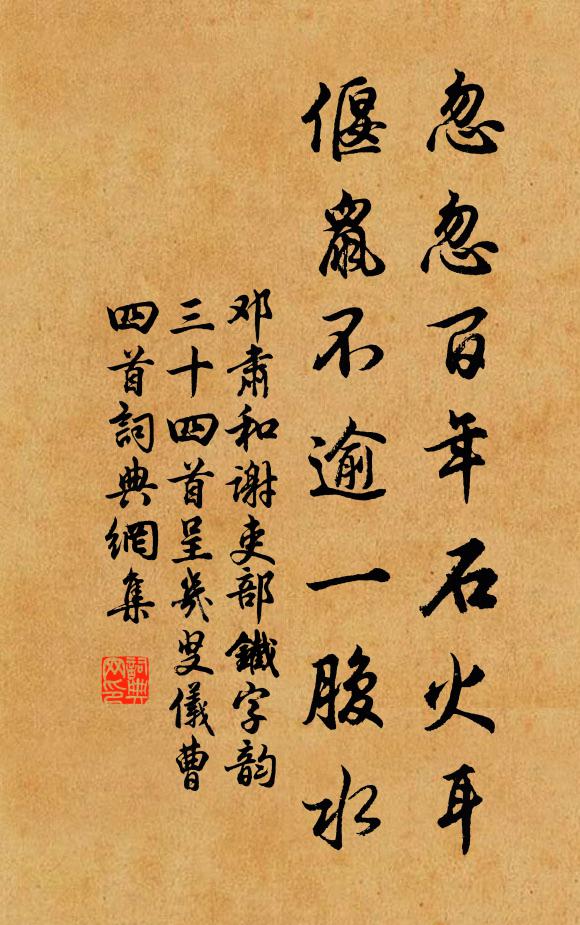 忽忽百年石火耳
偃鼠不逾一腹水
邓肃和谢吏部鐵字韵
三十四首呈幾叟儀曹
四首詞典網集
詞典网印